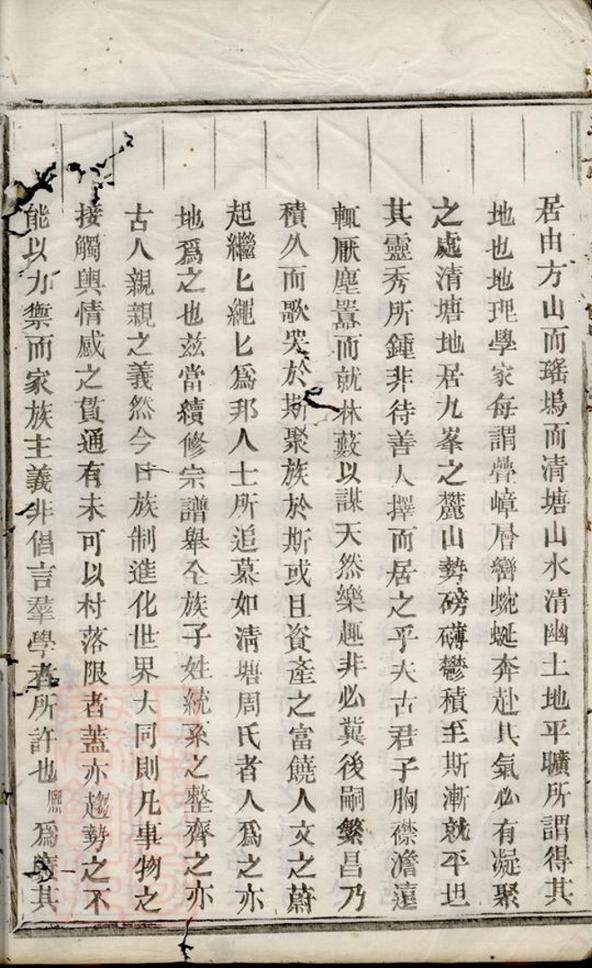 居由方山而瑤塢而清塘山水清幽土地平曠所謂得其
地也地理學家每謂疊嶂層巒蜿蜒奔赴其氣必有凝聚
之處清塘地居九峯之麓山勢磅礴鬱積至斯漸就平坦
其靈秀所鍾非待善人擇而居之乎夫古君子胸襟澹遠
輒厭塵囂而就林藪以謀天然樂趣非必冀後嗣繁昌乃
積久而歌哭於斯聚族於斯或且資產之富饒人文之蔚
起繼匕繩匕爲邦人士所追慕如清塘周氏者人爲之亦
地爲之也茲當續修宗譜舉全族子姓統系之整齊之亦
古人親親之義然今日族制進化世界大同則凡事物之
接觸與情感之貫通有未可以村落限者蓋亦趨勢之不
能以力禦而家族主義非倡言羣學者所許也熙爲其